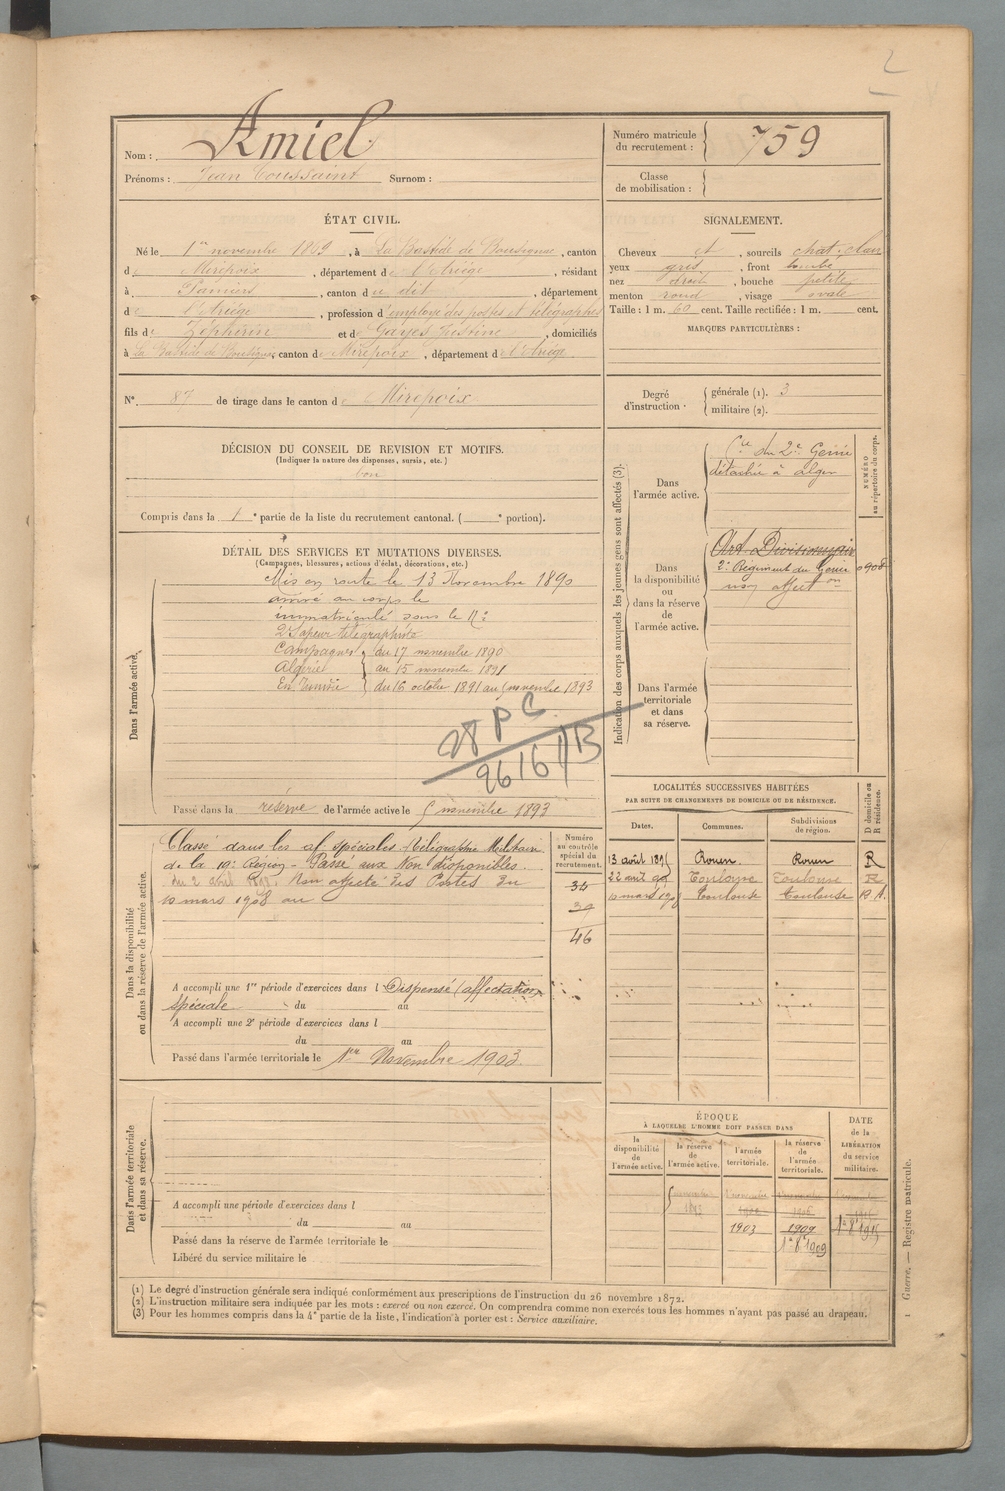 2
Nom : Amiel
Prénoms : Jean Toussaint Surnom :
Numéro matricule
du recrutement : 759
Classe
de mobilisation :
ÉTAT CIVIL.
Né le 1er novembre 1869, à La Bastide de Bousignac, canton
de Mirepoix, département de l'Ariège, résidant
à Pamiers, canton du dit, département
de l'Ariège, profession d'employé des postes et télégraphes
fils de Zéphirin et de Gayes Justine, domiciliés
à La Bastide de Bousignac, canton de Mirepoix, département de l'Ariège
SIGNALEMENT.
Cheveux et, sourcils chat. clair
yeux gris, front bombé
nez droit, bouche petite
menton rond, visage ovale
Taille : 1 m. 60 cent. Taille rectifiée : 1 m. cent.
MARQUES PARTICULIÈRES :
N° 87 de tirage dans le canton de Mirepoix
Degré
d'instruction.
générale (1). 3
militaire (2).
DÉCISION DU CONSEIL DE REVISION ET MOTIFS.
(Indiquer la nature des dispenses, sursis, etc.)
bon
Compris dans la 1e partie de la liste du recrutement cantonal. (e portion).
DÉTAIL DES SERVICES ET MUTATIONS DIVERSES.
(Campagnes, blessures, actions d'éclat, décorations, etc.)
Dans l'armée active.
Mis en route le 13 Novembre 1890
arrivé au corps le
immatriculé sous le N°
2e Sapeur télégraphiste
Campagnes du 17 novembre 1890
Algérie au 15 novembre 1891
En Tunisie du 16 octobre 1891 au novembre 1893
Passé dans la réserve de l'armée active le novembre 1893
Indication des corps auxquels les jeunes gens sont affectés (3).
NUMÉRO
au répertoire du corps.
Dans
l'armée active.
Cie du 2e Génie
détachée à alger
Dans
la disponibilité
ou
dans la réserve
de
l'armée active.
Art. Divisionnaire
2e Régiment du Génie 0908
non affecton
Dans l'armée
territoriale
et dans
sa réserve.
Dans la disponibilité
ou dans la réserve de l'armée active.
Numéro
au contrôle
spécial du
recrutement.
Classé dans les af. spéciales Télégraphie Militaire
de la 10e Région - Passé aux Non disponibles.
du 2 avril Non affecté des Postes du
10 mars 1908 au
46
A accompli une 1re période d'exercices dans l Dispensé (affectation
spéciale du au
A accompli une 2e période d'exercices dans l
du au
Passé dans l'armée territoriale le 1er Novembre 1903
LOCALITÉS SUCCESSIVES HABITÉES
PAR SUITE DE CHANGEMENTS DE DOMICILE OU DE RÉSIDENCE.
D domicile ou
R résidence.
Dates. Communes. Subdivisions
de région.
13 août 1895 Rouen Rouen R
22 avril 99 Toulouse Toulouse R
10 mars Toulouse Toulouse
Dans l'armée territoriale
et dans sa réserve.
A accompli une période d'exercices dans l
du au
Passé dans la réserve de l'armée territoriale le
Libéré du service militaire le
ÉPOQUE
À LAQUELLE L'HOMME DOIT PASSER DANS
DATE
de la
LIBÉRATION
du service
militaire.
la
disponibilité
de
l'armée active.
la réserve
de
l'armée active.
l'armée
territoriale.
la réserve
de
l'armée
territoriale.
novembre novembre novembre
1893
1903 1909
1909
(1) Le degré d'instruction générale sera indiqué conformément aux prescriptions de l'instruction du 26 novembre 1872.
(2) L'instruction militaire sera indiquée par les mots : exercé ou non exercé. On comprendra comme non exercés tous les hommes n'ayant pas passé au drapeau.
(3) Pour les hommes compris dans la 4e partie de la liste, l'indication à porter est : Service auxiliaire.
Guerre. — Registre matricule.